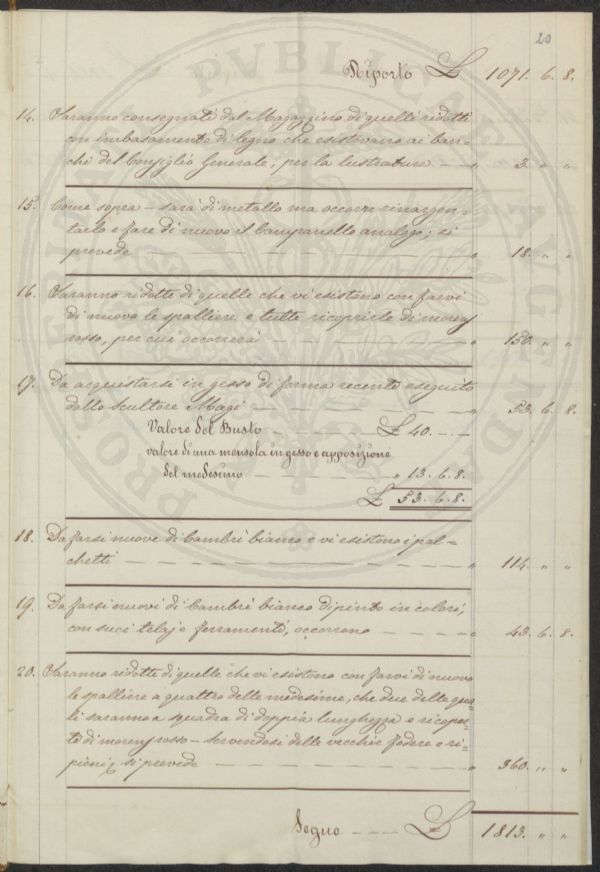 20
Riporto £ 1071. 6. 8.
14. Saranno consegnati dal Magazzino di quelli ridotti
con imbasamento di legno che esistevano ai ban=
chi del Consiglio Generale, per la lustratura — " 3. " "
15. Come sopra — sarà di metallo ma occorre rinargen=
tarlo e fare di nuovo il Campanello analogo; si
prevede — " 18. " "
16. Saranno ridotte di quelle che vi esistono con farvi
di nuovo le spalliere e tutte ricoprirle di moreng
rosso, per cui occorrerà — " 150. " "
17. Da acquistarsi in gesso di forma recente eseguito
dallo scultore Magi — " 53. 6. 8.
Valore del Busto — £ 40. — —
valore di una mensola in gesso e apposizione
del medesimo — " 13. 6. 8.
£ 53. 6. 8.
18. Da farsi nuove di Cambrì bianco e vi esistono i pal=
chetti — " 114. " "
19. Da farsi nuovi di Cambrì bianco dipinto in colori,
con suoi telaj e ferramenti, occorrono — " 43. 6. 8.
20. Saranno ridotte di quelle che vi esistono con farvi di nuovo
le spalliere a quattro delle medesime, che due delle qua=
li saranno a squadra di doppia lunghezza e ricoper=
te di moreng rosso — servendosi delle vecchie fodere e ri=
pieni, si prevede — " 360. " "
Segue — £ 1813. " "
PROSPERITATI PVBLICAE AVGENDAE